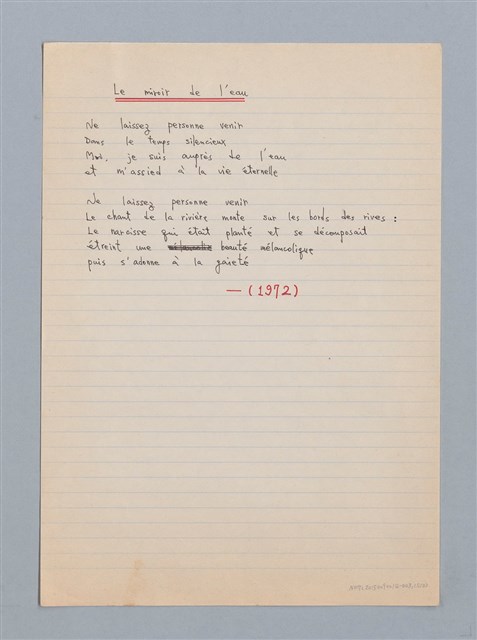 Le miroir de l'eau
Ne laissez personne venir
Dans le temps silencieux
Moi, je suis auprès de l'eau
et m'assied à la vie éternelle
Ne laissez personne venir
Le chant de la rivière monte sur les bords des rives :
Le narcisse qui était planté et se décomposait
étreint une beauté mélancolique
puis s'adonne à la gaieté
— (1972)